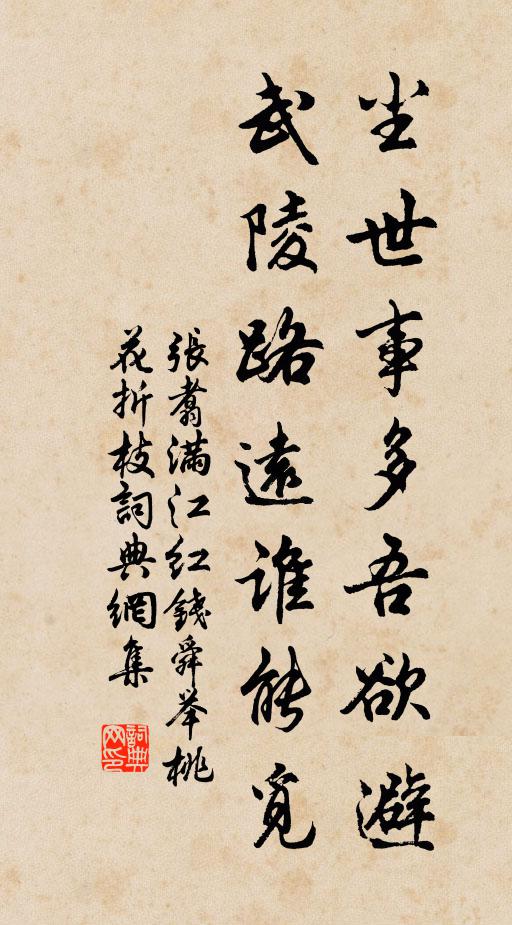 尘世事多吾欲避
武陵路遠谁能覓
張翥满江红錢舜举桃
花折枝詞典網集
詞典网印